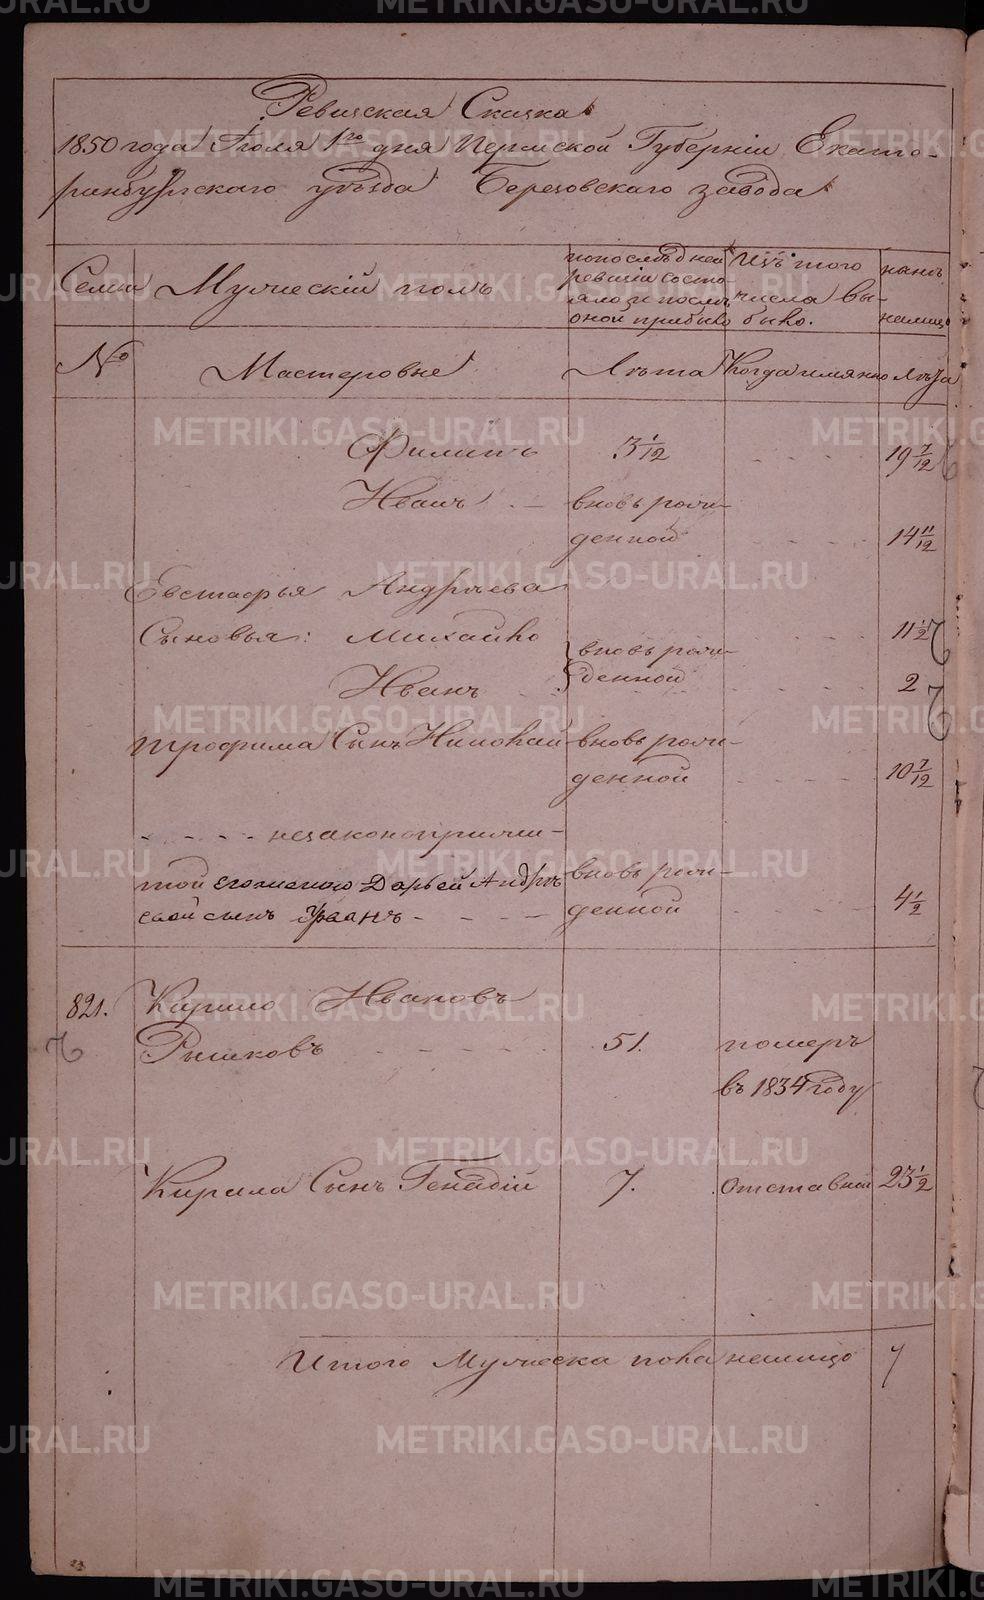 Ревизская Сказка
1850 года Июля 1го дня Пермской Губернiи Екате-
ринбургскаго уѣзда Березовскаго завода
Семьи Мужескiй полъ
по последней ревизiи состо-
яло и послѣ оной прибыло
Изъ того числа вы-
было.
нынѣ
налицо
№ Мастеровые Лѣта Когда имянно Лѣта
Филипъ 3 1/12 19 7/12
Иванъ вновь рож-
денной 14 11/12
Евстафья Андрѣева
Сыновья: Михайло 11 1/2
вновь рож-
денной
Иванъ 2
Трофима Сынъ Николай вновь рож-
денной 10 7/12
незаконоприжи-
той его женою Дарьей Андрѣ- вновь рож-
евой сынъ Иванъ денной 4 1/2
821. Кирило Ивановъ
Рышковъ 51. померъ
въ 1834 году
Кирила Сынъ Генадiй 7. Отставной 23 1/2
Итого Мужеска пола налицо 7
METRIKI.GASO-URAL.RU